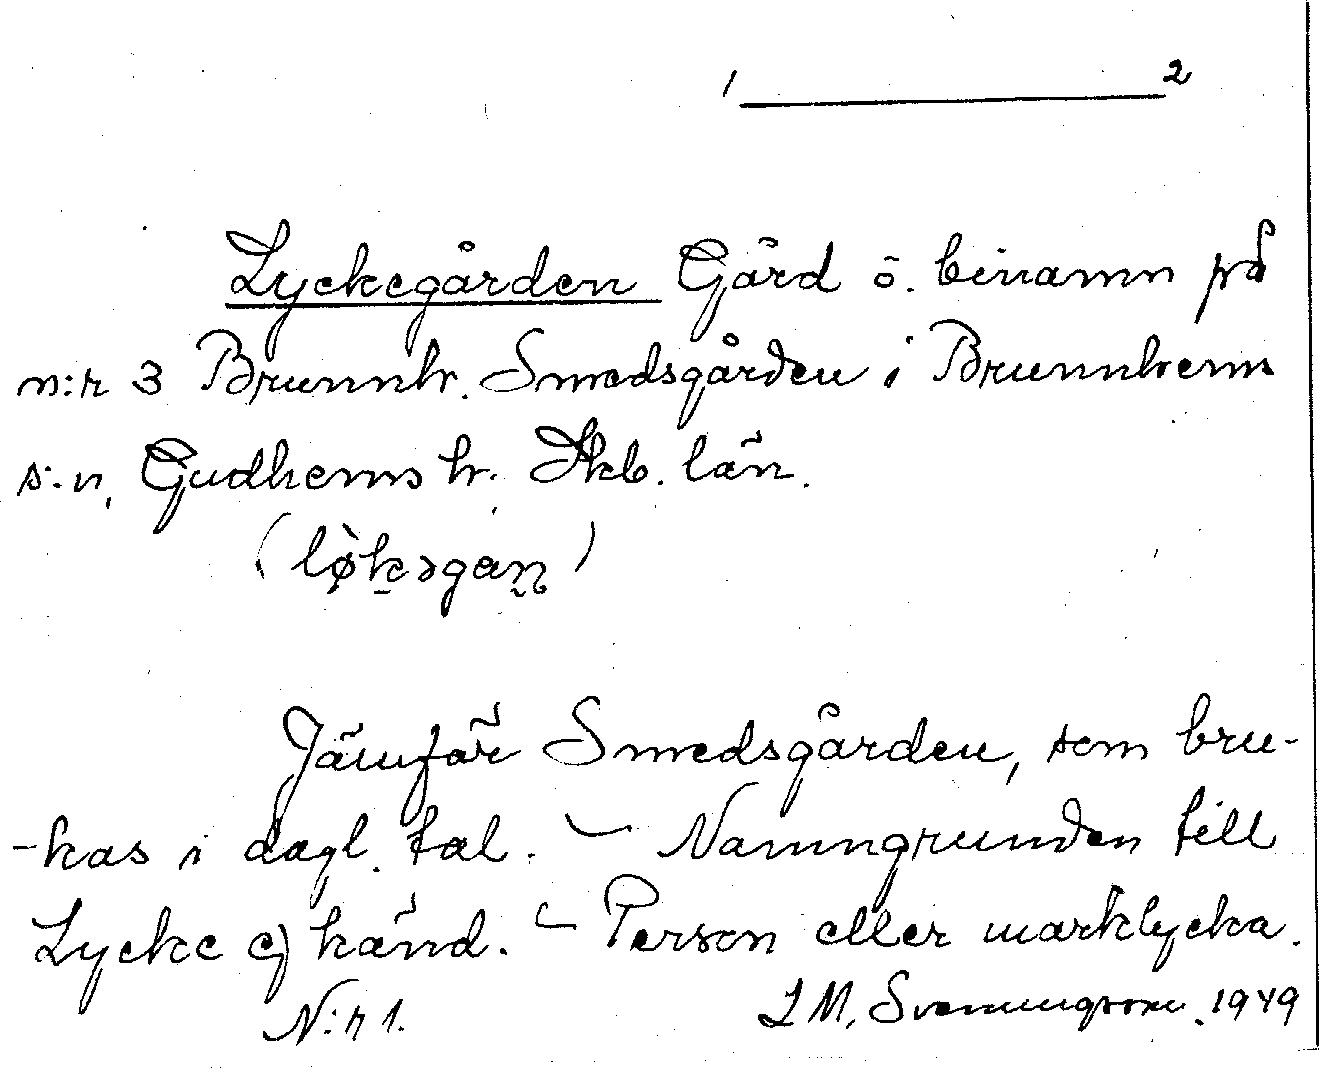 1 2
Lyckegården Gård o. binamn på
n:r 3 Brunnh. Smedsgården i Brunnhems
s:n, Gudhems hr. Skb. län.
(lø̀kəgaṇ)
Jämför Smedsgården, som bru-
-kas i dagl. tal. – Namngrunden till
Lycke ej känd. – Person eller marklycka.
N:r 1. L M, Svenungsson. 1949